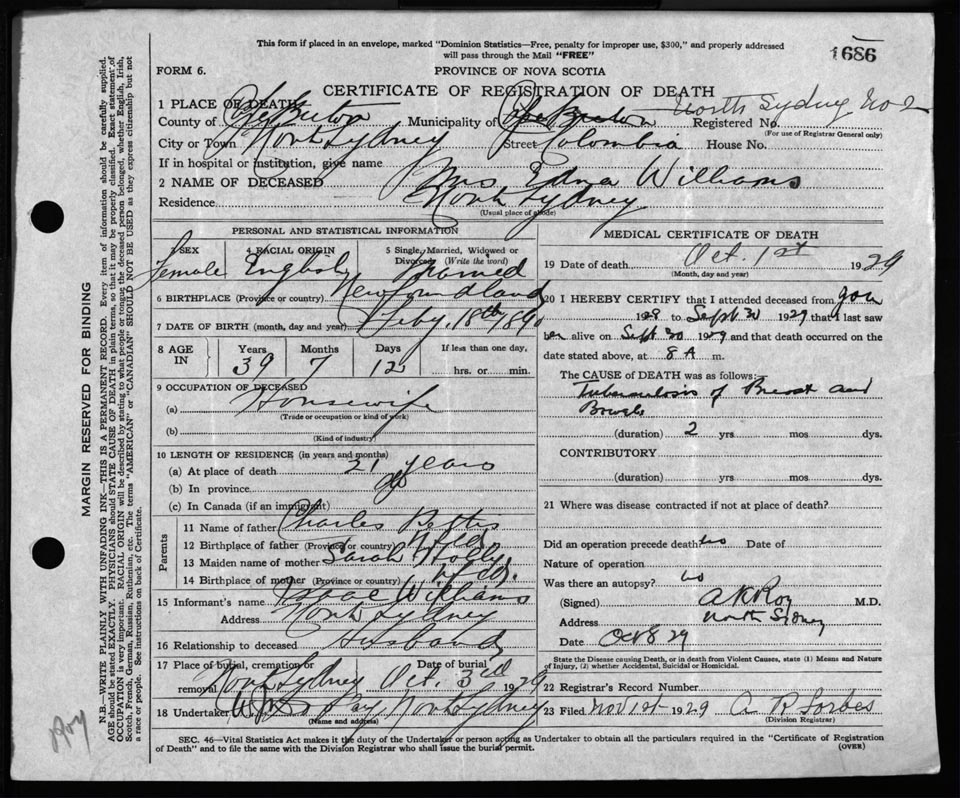 This form if placed in an envelope, marked "Dominion Statistics—Free, penalty for improper use, $300," and properly addressed
will pass through the Mail "FREE"
1686
FORM 6.
PROVINCE OF NOVA SCOTIA
CERTIFICATE OF REGISTRATION OF DEATH
North Sydney No 2
1 PLACE OF DEATH
County of Cape Breton Municipality of Cape Breton Registered No.
(For use of Registrar General only)
City or Town North Sydney Street Colombia House No.
If in hospital or institution, give name
2 NAME OF DECEASED Mrs Edna Williams
Residence North Sydney
(Usual place of abode)
PERSONAL AND STATISTICAL INFORMATION
3 SEX 4 RACIAL ORIGIN 5 Single, Married, Widowed or Divorced (Write the word)
Female English Married
6 BIRTHPLACE (Province or country) Newfoundland
7 DATE OF BIRTH (month, day and year) Feby. 18th 1890
8 AGE IN Years Months Days If less than one day,
39 7 12 hrs. or min.
9 OCCUPATION OF DECEASED
(a) Housewife
(Trade or occupation or kind of work)
(b)
(Kind of industry)
10 LENGTH OF RESIDENCE (in years and months)
(a) At place of death 21 years
(b) In province do
(c) In Canada (if an immigrant)
Parents
11 Name of father Charles
12 Birthplace of father (Province or country) Nfld.
13 Maiden name of mother Sarah
14 Birthplace of mother (Province or country) Nfld.
15 Informant's name Isaac Williams
Address North Sydney
16 Relationship to deceased Husband
17 Place of burial, cremation or removal Date of burial
North Sydney Oct. 3rd 1929
18 Undertaker North Sydney
(Name and address)
MEDICAL CERTIFICATE OF DEATH
19 Date of death Oct. 1st 1929
(Month, day and year)
20 I HEREBY CERTIFY that I attended deceased from
1928 to Sept 30 1929 that I last saw
her alive on Sept 30 1929 and that death occurred on the
date stated above, at 8 A m.
The CAUSE OF DEATH was as follows:
Tuberculosis of Breast and
Bowels
(duration) 2 yrs mos dys.
CONTRIBUTORY
(duration) yrs mos dys.
21 Where was disease contracted if not at place of death?
Did an operation precede death? Date of
Nature of operation
Was there an autopsy? no
(Signed) A K Roy M.D.
Address North Sydney
Date Oct 8 29
State the Disease causing Death, or in death from Violent Causes, state (1) Means and Nature
of Injury, (2) whether Accidental, Suicidal or Homicidal.
22 Registrar's Record Number
23 Filed Nov 1st 1929 A R Forbes
(Division Registrar)
SEC. 46—Vital Statistics Act makes it the duty of the Undertaker or person acting as Undertaker to obtain all the particulars required in the "Certificate of Registration
of Death" and to file the same with the Division Registrar who shall issue the burial permit.
(OVER)
MARGIN RESERVED FOR BINDING
N.B.—WRITE PLAINLY WITH UNFADING INK—THIS IS A PERMANENT RECORD. Every item of information should be carefully supplied.
AGE should be stated EXACTLY. PHYSICIANS should STATE CAUSE OF DEATH in plain terms, so that it may be properly classified. Exact statement of
OCCUPATION is very important. RACIAL ORIGIN will be described by stating to what people or tongue the deceased person belonged, whether English, Irish,
Scotch, French, German, Russian, Ruthenian, etc. The terms "AMERICAN" or "CANADIAN" SHOULD NOT BE USED as they express citizenship but not
a race or people. See instructions on back of Certificate.
Roy